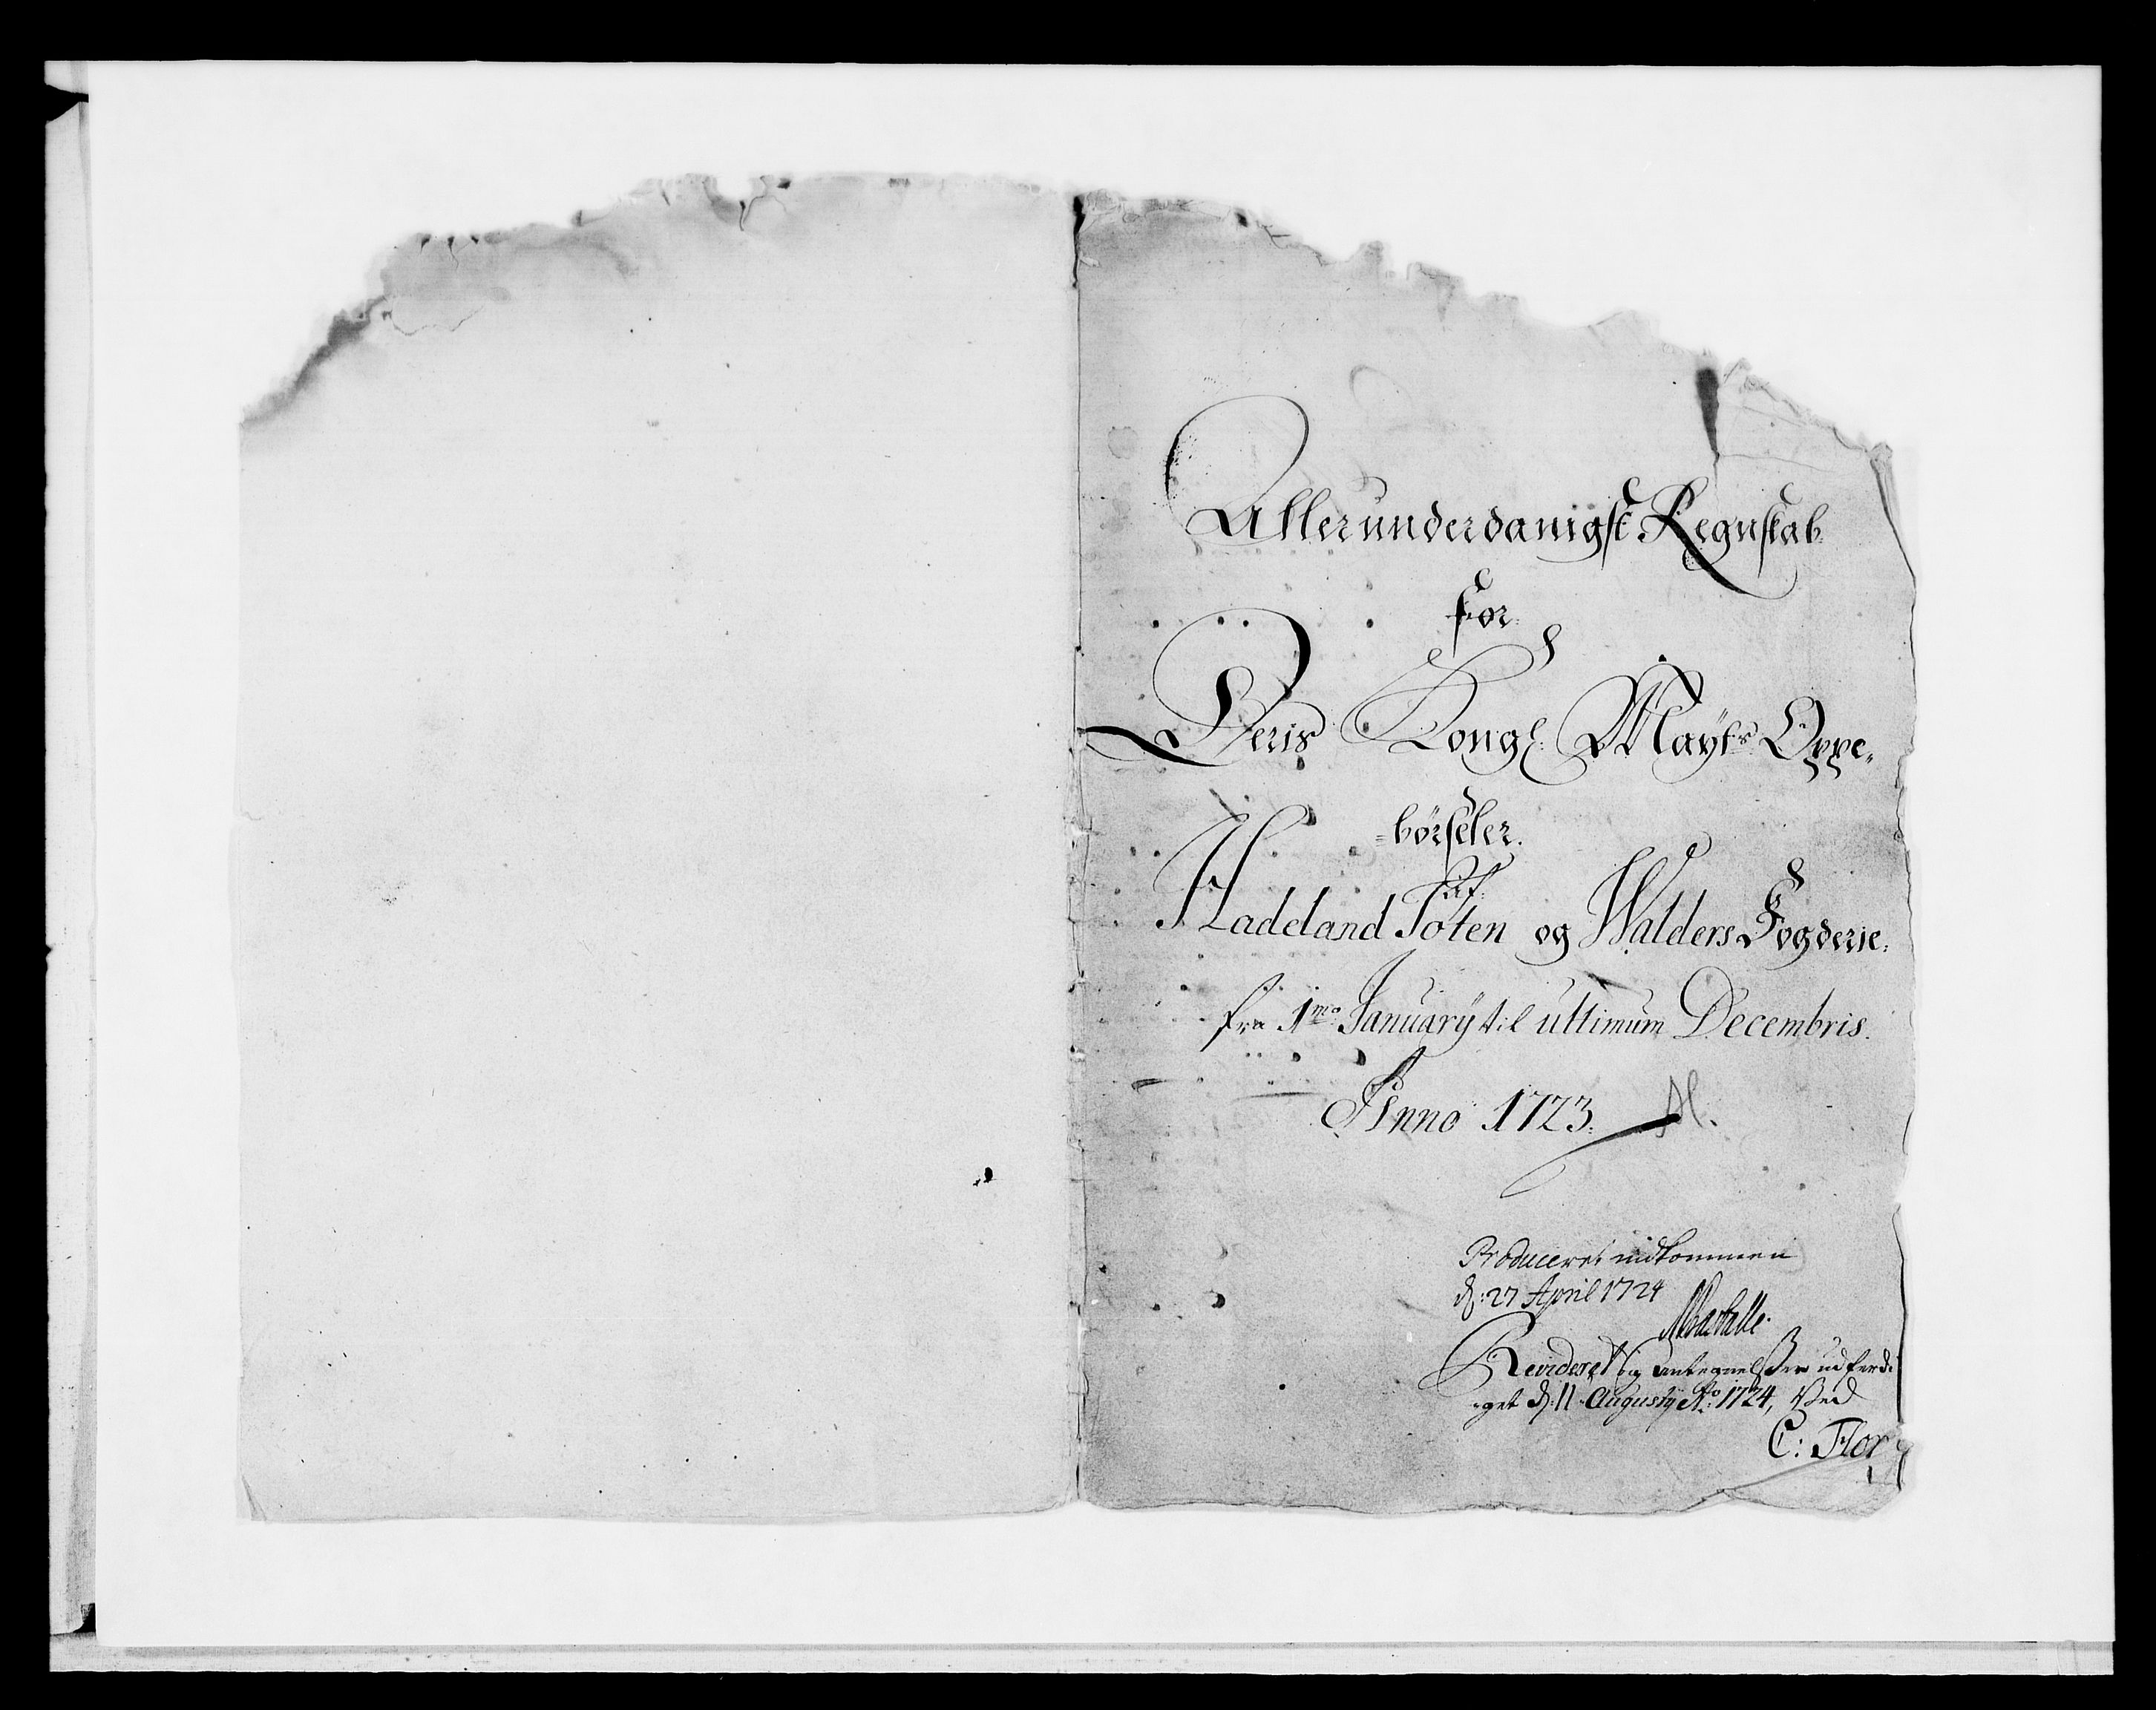 Allerunderdanigst Regnskab
for
Deris Kongl: Maÿts Oppe„
=börseler.
Af
Hadeland Toten og Walders Fogderie:
fra 1mo Januarÿ til ultimum Decembris.
Anno 1723.
Produceret indkommen
d: 27 April 1724
Revideret og antegnelsser udferdi
get d: 11 Augustÿ Ao: 1724, Ved
C: Flor